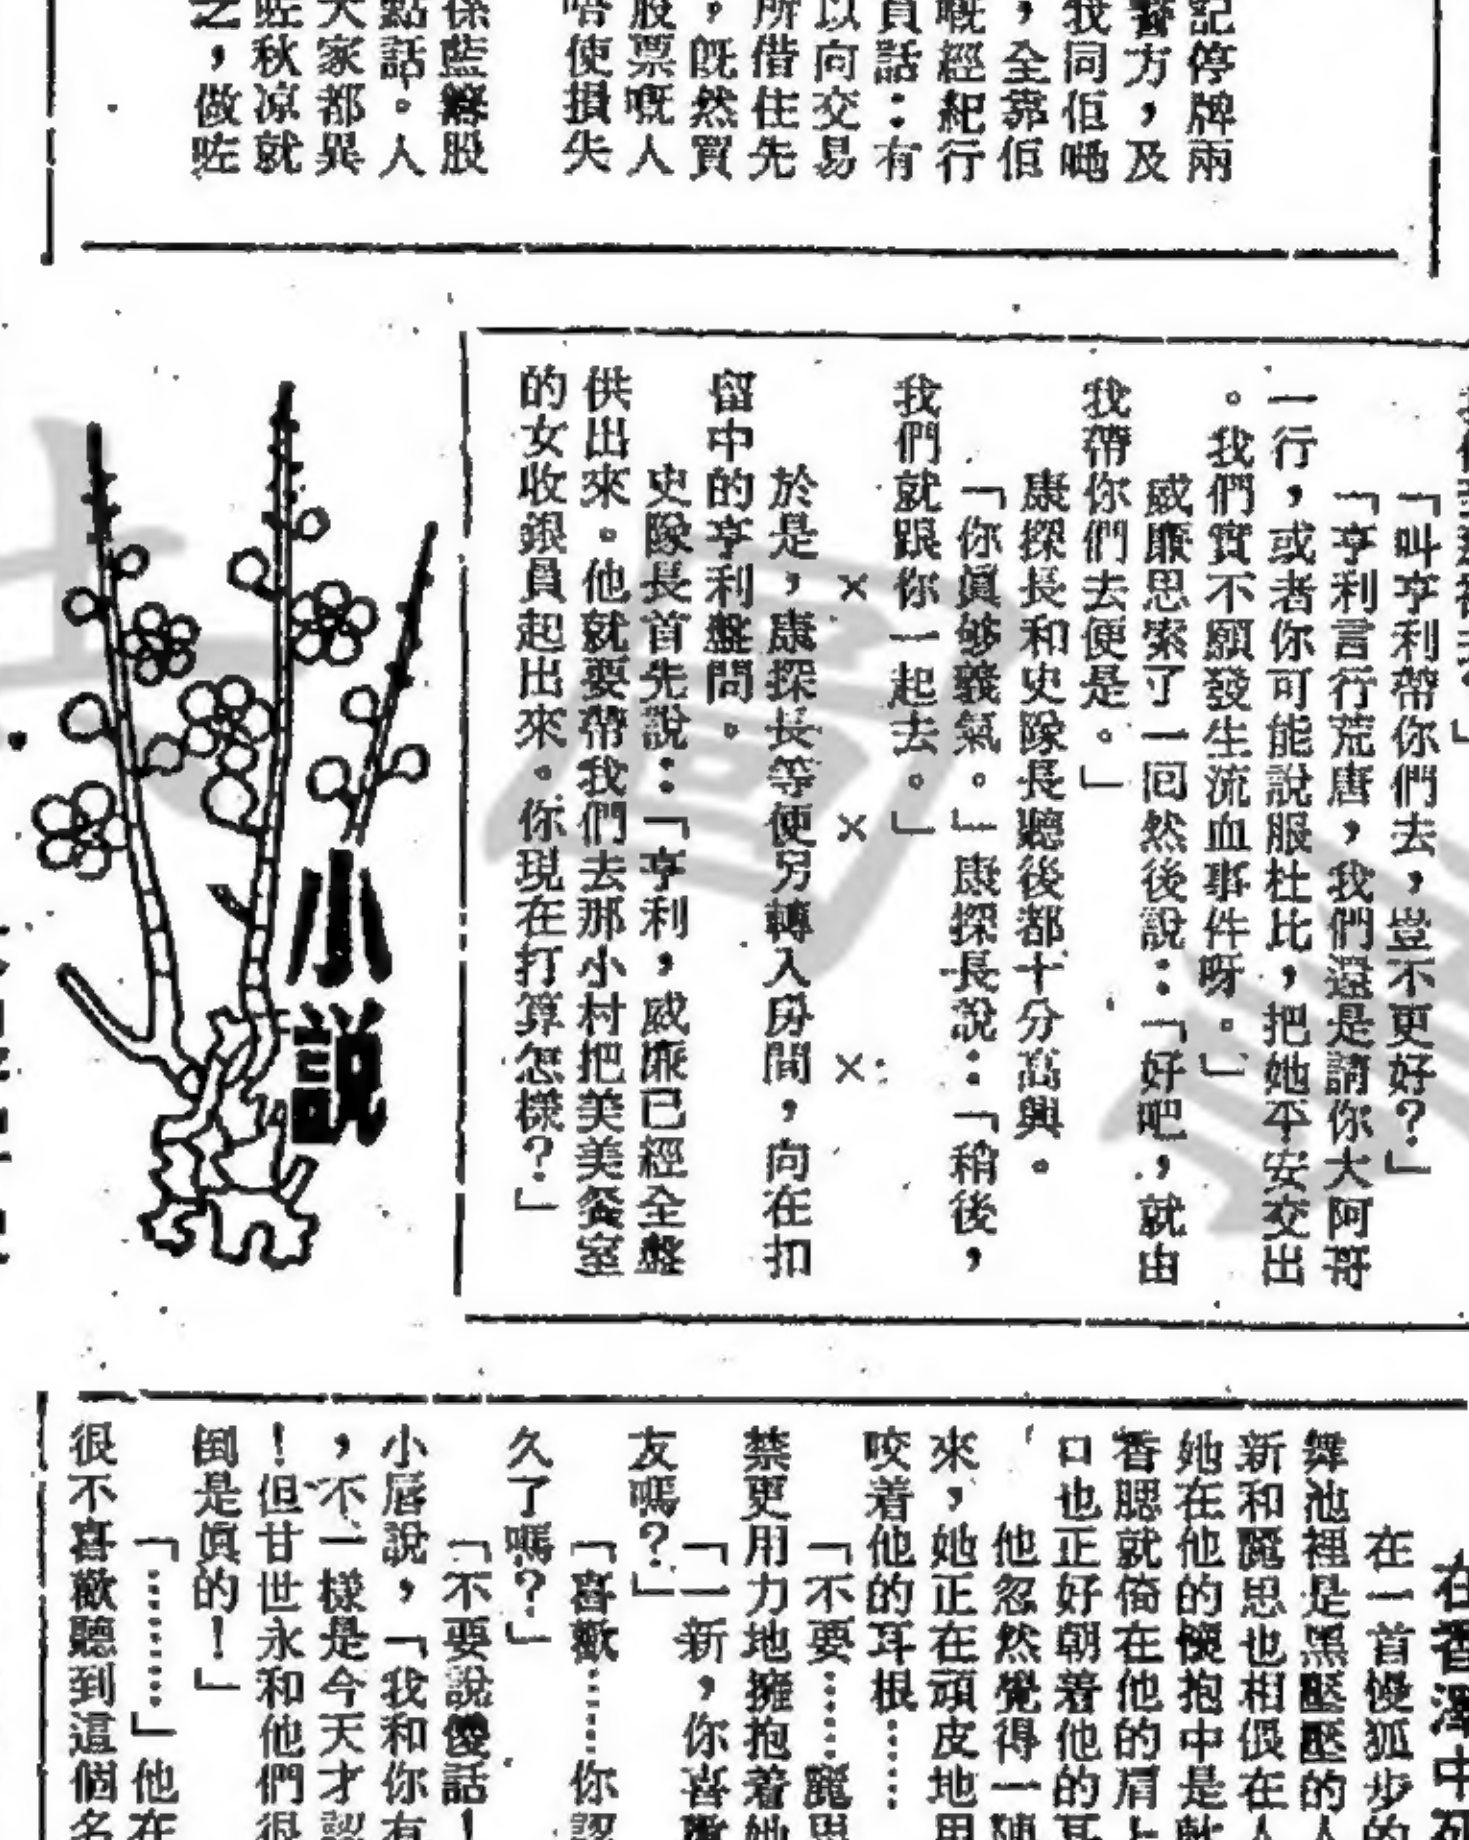 記停牌兩
方，及
我同佢哋
，全靠佢
嘅經紀行
員話：有
以向交易
所借住先
，既然買
股票嘅人
唔使損失
係藍籌股
點話。人
大家都異
咗秋凉就
之，做咗
「叫亨利帶你們去，豈不更好？」
「亨利言行荒唐，我們還是請你大阿哥
一行，或者你可能說服杜比，把她平安交出
。我們實不願發生流血事件呀。」
威廉思索了一回然後說：「好吧，就由
我帶你們去便是。」
康探長和史隊長聽後都十分高興。
「你眞够義氣。」康探長說：「稍後，
我們就跟你一起去。」
× × ×
於是，康探長等便另轉入房間，向在扣
留中的亨利盤問。
史隊長首先說：「亨利，威廉已經全盤
供出來。他就要帶我們去那小村把美美餐室
的女收銀員起出來。你現在打算怎樣？」
小說
在香澤中
在一首慢狐步的
舞池裡是黑壓壓的人
新和麗思也相偎在人
她在他的懷抱中是
香腮就倚在他的肩上
口也正好朝着他的耳
他忽然覺得一陣
來，她正在頑皮地用
咬着他的耳根……
「不要……麗思
禁更用力地擁抱着她
「一新，你喜歡
友嗎？」
「喜歡……你認
久了嗎？」
「不要說傻話！
小唇說，「我和你有
，不一樣是今天才認
！但甘世永和他們很
倒是眞的！」
「………」他在
很不喜歡聽到這個名